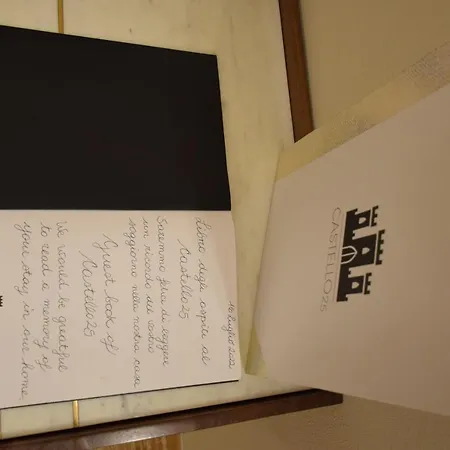 16 Luglio 2022
Libro degli ospiti al
Castello25
Saremmo felici di leggere
un ricordo del vostro
soggiorno nella nostra casa
Guest book of
Castello25
We would be greatful
to read a memory of
your stay in our home.
CASTELLO25